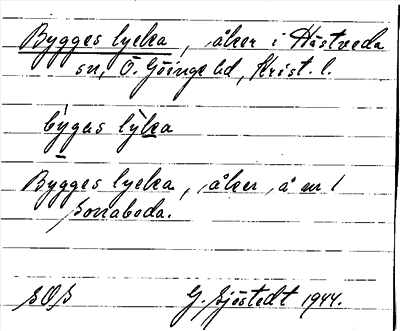 Bygges lycka, åker i Hästveda
sn, Ö. Göinge hd, Krist. l.
bygas lyka
Bygges lycka, åker å nr 1
Sonnaboda.
SOS G. Sjöstedt 1944.